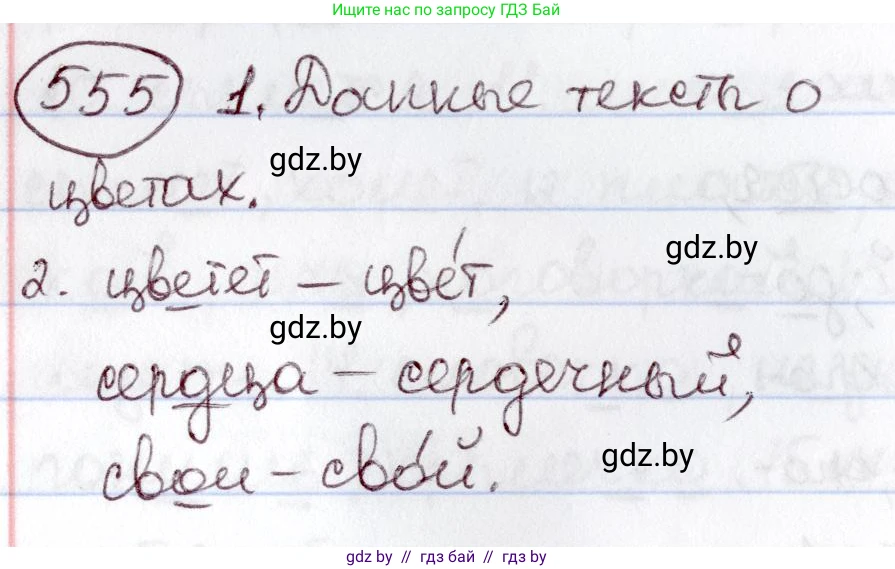 Ищите нас по запросу ГДЗ Бай
555 1. Данные тексты о
gdz.by
цветах.
gdz.by
2. цветет – цве́т,
gdz.by
сердца – сердечный,
gdz.by
свои – сво́й.
gdz.by // гдз бай // гдз by